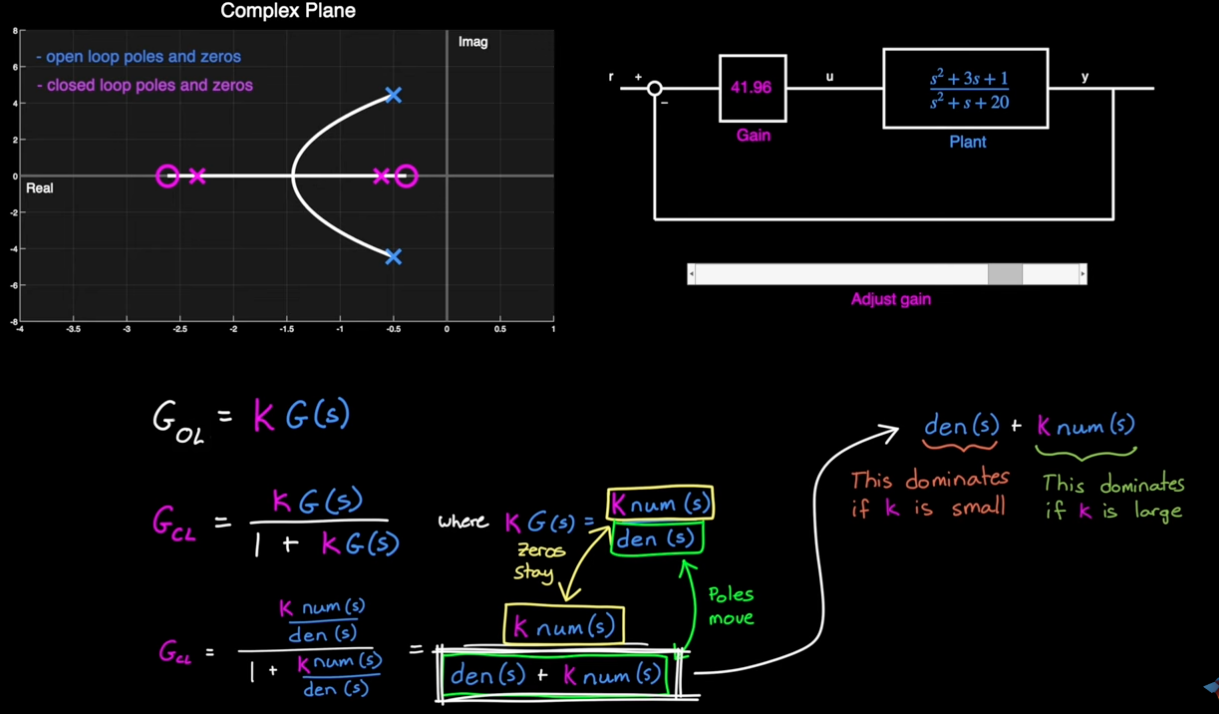 Complex Plane
- open loop poles and zeros
- closed loop poles and zeros
Imag
Real
8
6
4
2
0
-2
-4
-6
-8
-4 -3.5 -3 -2.5 -2 -1.5 -1 -0.5 0 0.5 1
r + − 41.96 u s² + 3s + 1 y
s² + s + 20
Gain
Plant
Adjust gain
G_OL = K G(s)
G_CL = K G(s) / 1 + K G(s)
where K G(s) = K num(s) / den(s)
zeros
stay
Poles
move
G_CL = K num(s) / den(s) / 1 + K num(s) / den(s) = K num(s) / den(s) + K num(s)
den(s) + K num(s)
This dominates
if K is small
This dominates
if K is large